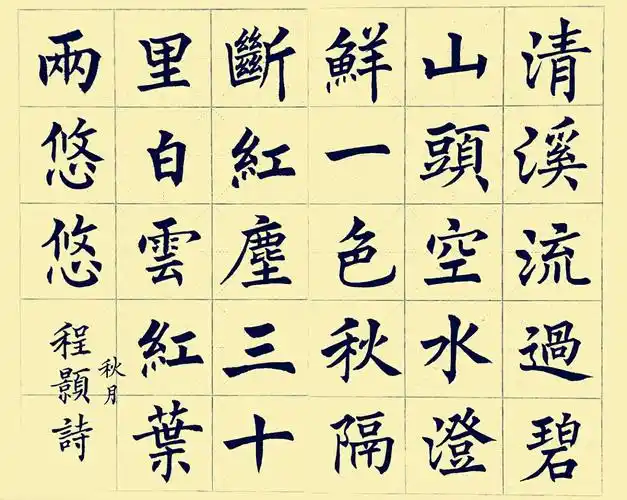 清溪流過碧
山頭空水澄
鮮一色秋隔
斷紅塵三十
里白雲紅葉
兩悠悠
秋月
程顥詩